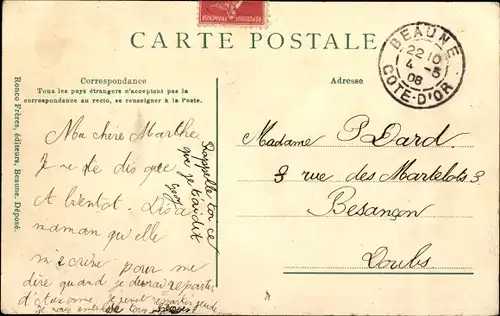 CARTE POSTALE
Correspondance
Tous les pays étrangers n'acceptent pas la
correspondance au recto, se renseigner à la Poste.
Adresse
Ronco Frères, éditeurs, Beaune. Déposé.
BEAUNE
22 10
4 -5
08
COTE-D'OR
Ma chère Marthe
Je ne te dis que
A bientôt. Dis à
maman qu'elle
m'écrive pour me
dire quand je devrai repartir
Rappelle toi ce
que je t'ai dit
Madame P Dard
3 rue des Martelots 3
Besançon
Doubs